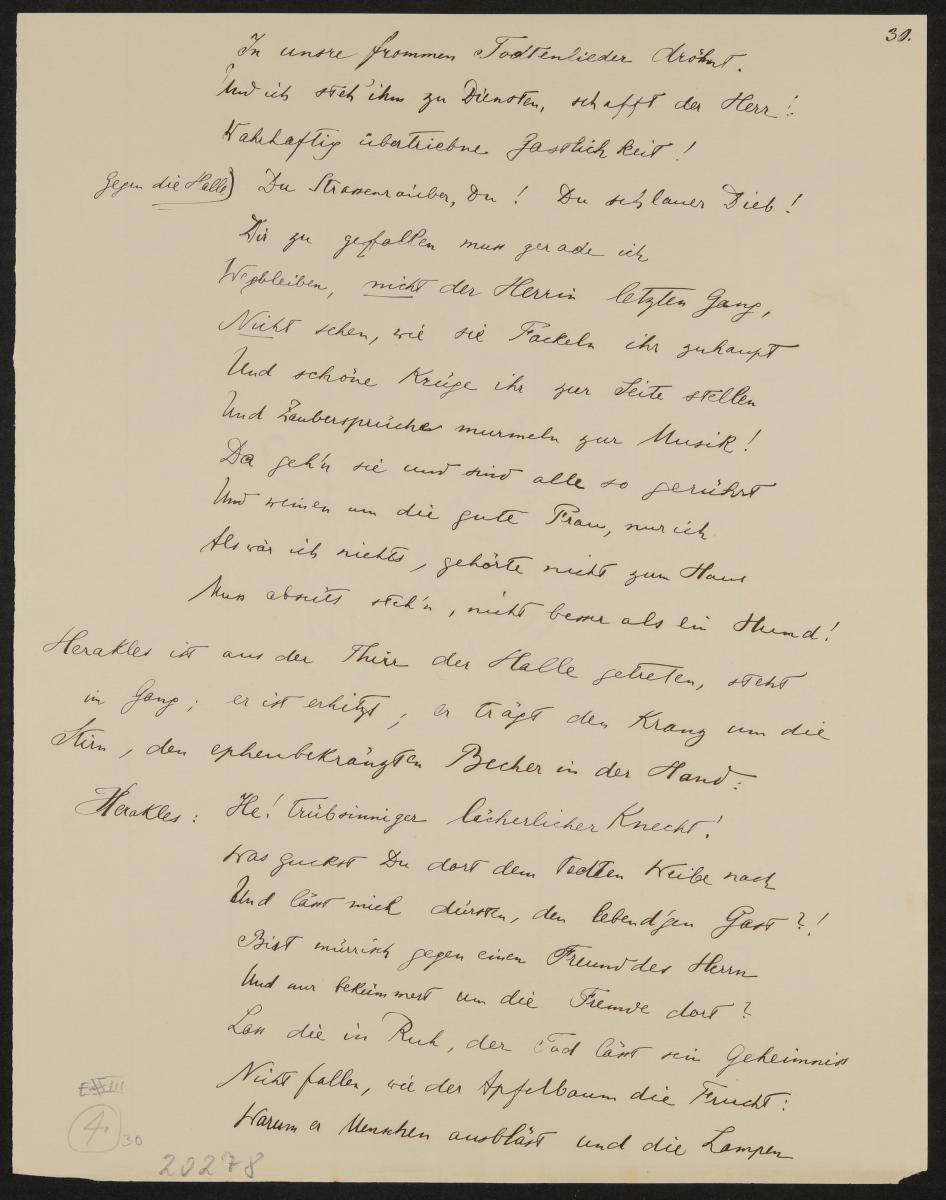 30.
In unsre frommen Todtenlieder dröhnt.
Und ich steh' ihm zu Diensten, schafft der Herr!
Wahrhaftig übertriebne Gastlichkeit!
Gegen die Halle) Du Strassenräuber, Du! Du schlauer Dieb!
Dir zu gefallen muss gerade ich
Wegbleiben, nicht der Herrin letzten Gang,
Nicht sehen, wie sie Fackeln ihr zuhaupt
Und schöne Krüge ihr zur Seite stellen
Und Zaubersprüche murmeln zur Musik!
Da geh'n sie und sind alle so gerührt
Und weinen um die gute Frau, nur ich
Als wär ich nichts, gehörte nicht zum Haus
Muss abseits steh'n, nicht besser als ein Hund!
Herakles ist aus der Thür der Halle getreten, steht
im Gang; er ist erhitzt, er trägt den Kranz um die
Stirn, den epheubekränzten Becher in der Hand:
Herakles: He! trübsinniger lächerlicher Knecht!
Was guckst Du dort dem todten Weibe nach
Und lässt mich dürsten, den lebend'gen Gast?!
Bist mürrisch gegen einen Freund des Herrn
Und nur bekümmert um die Fremde dort?
Lass die in Ruh, der Tod lässt sein Geheimniss
Nicht fallen, wie der Apfelbaum die Frucht:
Warum er Menschen ausbläst und die Lampen
E III
4
30
20278